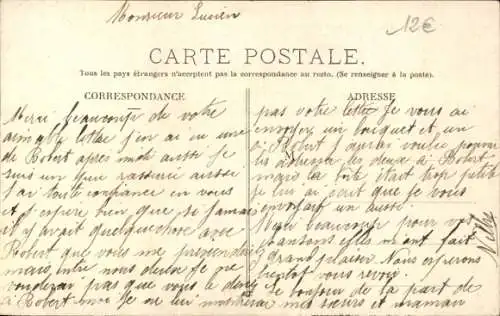 Monsieur Lucien
12€
CARTE POSTALE.
Tous les pays étrangers n'acceptent pas la correspondance au recto. (Se renseigner à la poste).
CORRESPONDANCE
Merci beaucoup de votre
aimable lettre j'en ai eu une
de Robert après midi aussi je
suis un peu rassurée aussi
j'ai toute confiance en vous
et j'espère bien que si jamais
y avait quelque chose avec
Robert que vous me préviendriez
mais entre nous deux je ne
voudrais pas que vous le disiez
à Robert moi je ne lui montrerai
ADRESSE
pas votre lettre Je vous ai
envoyé un bouquet et un
à Robert j'aurai voulu pouvoir
les adresser les deux à Robert
mais la boîte était trop petite
je lui ai écrit que je vous
envoyait un aussi.
Merci beaucoup pour vos
chansons elles m'ont fait
grand plaisir. Nous espérons
bientôt vous revoir.
le bonjour de la part de
mes sœurs et maman